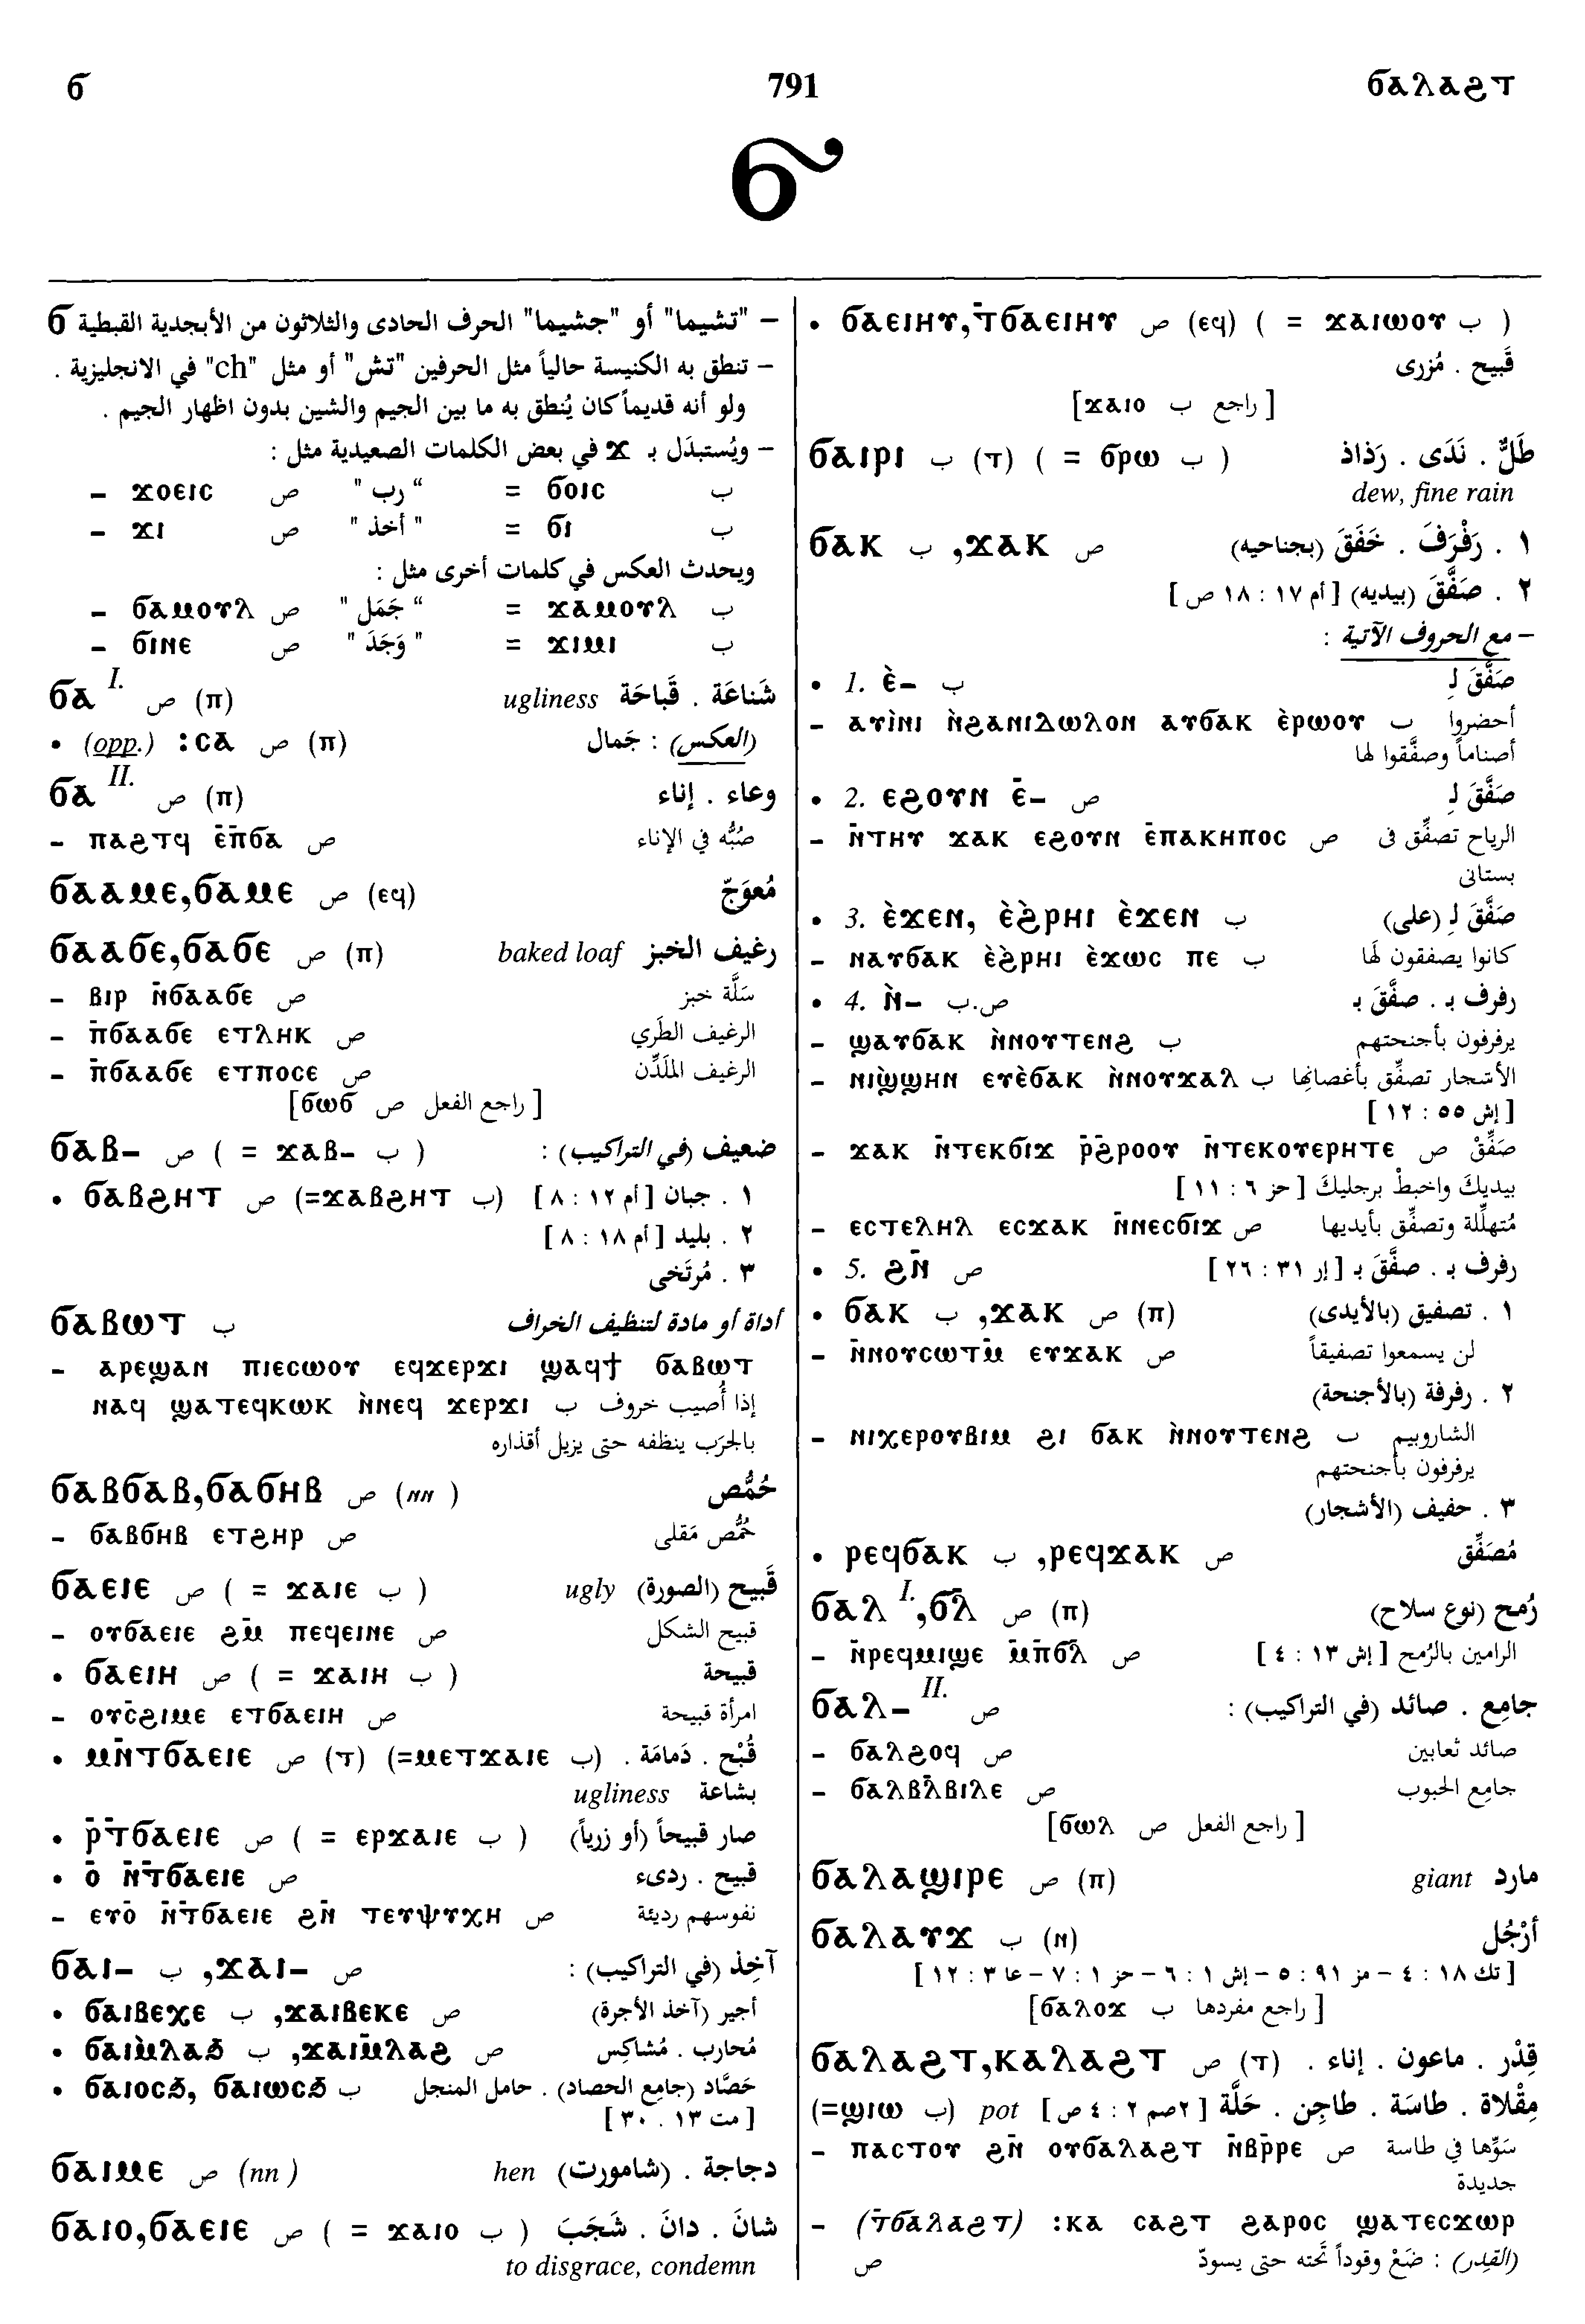 ϭ 791 ϭⲁⲗⲁϩⲧ
ϭ
ϭ – "تشيما" أو "جشيما" الحرف الحادى والثلاثون من الأبجدية القبطية
– تنطق به الكنيسة حالياً مثل الحرفين "تش" أو مثل "ch" في الانجليزية .
ولو أنه قديماً كان يُنطق به ما بين الجيم والشين بدون اظهار الجيم .
– ويُستبدَل بـ ϫ في بعض الكلمات الصعيدية مثل :
– ϫⲟⲉⲓⲥ ص " رب " = ϭⲟⲓⲥ ب
– ϫⲓ ص " أخذ " = ϭⲓ ب
ويحدث العكس في كلمات أخرى مثل :
– ϭⲁⲙⲟⲩⲗ ص " جَمَل " = ϫⲁⲙⲟⲩⲗ ب
– ϭⲓⲛⲉ ص " وَجَدَ " = ϫⲓⲙⲓ ب
ϭⲁ I. ص (ⲡ) شَناعَة . قَباحَة ugliness
• (opp.) :ⲥⲁ ص (ⲡ) (العكس) : جَمال
ϭⲁ II. ص (ⲡ) وعاء . إناء
– ⲡⲁϩⲧϥ ⲉ̄ⲡ̄ϭⲁ ص صُبُّه في الإناء
ϭⲁⲁⲙⲉ,ϭⲁⲙⲉ ص (ⲉϥ) مُعوَجّ
ϭⲁⲁϭⲉ,ϭⲁϭⲉ ص (ⲡ) رغيف الخبز baked loaf
– ⲃⲓⲣ ⲛ̄ϭⲁⲁϭⲉ ص سَلَّة خبز
– ⲡ̄ϭⲁⲁϭⲉ ⲉⲧⲗⲏⲕ ص الرغيف الطَري
– ⲡ̄ϭⲁⲁϭⲉ ⲉⲧⲡⲟⲥⲉ ص الرغيف الملَدَّن
[ راجع الفعل ص ϭⲱϭ]
ϭⲁⲃ– ص ( = ϫⲁⲃ– ب ) ضعيف (في التراكيب) :
• ϭⲁⲃϩⲏⲧ ص (=ϫⲁⲃϩⲏⲧ ب) ١ . جبان [أم ١٢ : ٨ ]
٢ . بليد [أم ١٨ : ٨ ]
٣ . مُرتَخى
ϭⲁⲃⲱⲧ ب أداة أو مادة لتنظيف الخراف
– ⲁⲣⲉϣⲁⲛ ⲡⲓⲉⲥⲱⲟⲩ ⲉϥϫⲉⲣϫⲓ ϣⲁϥϯ ϭⲁⲃⲱⲧ
ⲛⲁϥ ϣⲁⲧⲉϥⲕⲱⲕ ⲛ̀ⲛⲉϥ ϫⲉⲣϫⲓ ب إذا أُصيب خروف
بالجَرَب ينظفه حتى يزيل أقذاره
ϭⲁⲃϭⲁⲃ,ϭⲁϭⲏⲃ ص (nn ) حُمُّص
– ϭⲁⲃϭⲏⲃ ⲉⲧϩⲏⲣ ص حُمُّص مَقلى
ϭⲁⲉⲓⲉ ص ( = ϫⲁⲓⲉ ب ) قَبيح (الصورة) ugly
– ⲟⲩϭⲁⲉⲓⲉ ϩⲙ̄ ⲡⲉϥⲉⲓⲛⲉ ص قبيح الشكل
• ϭⲁⲉⲓⲏ ص ( = ϫⲁⲓⲏ ب ) قبيحة
– ⲟⲩⲥ̄ϩⲓⲙⲉ ⲉⲧϭⲁⲉⲓⲏ ص امرأة قبيحة
• ⲙⲛ̄ⲧϭⲁⲉⲓⲉ ص (ⲧ) (=ⲙⲉⲧϫⲁⲓⲉ ب) قُبْح . دَمامَة .
بشاعة ugliness
• ⲣ̄ⲧ̄ϭⲁⲉⲓⲉ ص ( = ⲉⲣϫⲁⲓⲉ ب ) صار قبيحاً (أو زرياً)
• ⲟ̄ ⲛ̄ⲧ̄ϭⲁⲉⲓⲉ ص قبيح . ردىء
– ⲉⲩⲟ̄ ⲛ̄ⲧ̄ϭⲁⲉⲓⲉ ϩⲛ̄ ⲧⲉⲩⲯⲩⲭⲏ ص نفوسهم رديئة
ϭⲁⲓ– ب ,ϫⲁⲓ– ص آخِذ (في التراكيب) :
• ϭⲁⲓⲃⲉⲭⲉ ب ,ϫⲁⲓⲃⲉⲕⲉ ص أجير (آخذ الأجرة)
• ϭⲁⲓⲙ̀ⲗⲁϧ ب ,ϫⲁⲓⲙ̄ⲗⲁϩ ص مُحارب . مُشاكِس
• ϭⲁⲓⲟⲥϧ, ϭⲁⲓⲱⲥϧ ب حَصَّاد (جامع الحصاد) . حامل المنجل
[مت ١٣ . ٣٠ ]
ϭⲁⲓⲙⲉ ص (nn ) دجاجة . (شامورت) hen
ϭⲁⲓⲟ,ϭⲁⲉⲓⲉ ص ( = ϫⲁⲓⲟ ب ) شانَ . دانَ . شَجَبَ
to disgrace, condemn
• ϭⲁⲉⲓⲏⲩ,ⲧ̄ϭⲁⲉⲓⲏⲩ ص (ⲉϥ) ( = ϫⲁⲓⲱⲟⲩ ب )
قَبيح . مُزرى
[ϫⲁⲓⲟ ب راجع ]
ϭⲁⲓⲣⲓ ب (ⲧ) ( = ϭⲣⲱ ب ) طَلٌّ . نَدَى . رَذاذ
dew, fine rain
ϭⲁⲕ ب ,ϫⲁⲕ ص ١ . رَفْرَفَ . خَفَقَ (بجناحيه)
٢ . صَفَّقَ (بيديه) [أم ١٧ : ١٨ ص ]
– مع الحروف الآتية :
• 1. ⲉ̀– ب صَفَّقَ لِـ
– ⲁⲩⲓ̀ⲛⲓ ⲛ̀ϩⲁⲛⲓⲇⲱⲗⲟⲛ ⲁⲩϭⲁⲕ ⲉ̀ⲣⲱⲟⲩ ب أحضروا
أصناماً وصفَّقوا لها
• 2. ⲉϩⲟⲩⲛ ⲉ̄– ص صَفَّقَ لِـ
– ⲛ̄ⲧⲏⲩ ϫⲁⲕ ⲉϩⲟⲩⲛ ⲉ̄ⲡⲁⲕⲏⲡⲟⲥ ص الرياح تصفَّق فى
بستانى
• 3. ⲉ̀ϫⲉⲛ, ⲉ̀ϩ̀ⲣⲏⲓ ⲉ̀ϫⲉⲛ ب صَفَّقَ لِـ (على)
– ⲛⲁⲩϭⲁⲕ ⲉ̀ϩ̀ⲣⲏⲓ ⲉ̀ϫⲱⲥ ⲡⲉ ب كانوا يصفقون لَها
• 4. ⲛ̀– ص.ب رفرف بـ . صفَّقَ بـ
– ϣⲁⲩϭⲁⲕ ⲛ̀ⲛⲟⲩⲧⲉⲛϩ ب يرفرفون بأجنحتهم
– ⲛⲓϣ̀ϣⲏⲛ ⲉⲩⲉ̀ϭⲁⲕ ⲛ̀ⲛⲟⲩϫⲁⲗ ب الأشجار تصفَّق بأغصانِها
[إش ٥٥ : ١٢ ]
– ϫⲁⲕ ⲛ̄ⲧⲉⲕϭⲓϫ ⲣ̄ϩ̄ⲣⲟⲟⲩ ⲛ̄ⲧⲉⲕⲟⲩⲉⲣⲏⲧⲉ ص صَفَّقْ
بيديكَ واخبطْ برجليكَ [حز ٦ : ١١ ]
– ⲉⲥⲧⲉⲗⲏⲗ ⲉⲥϫⲁⲕ ⲛ̄ⲛⲉⲥϭⲓϫ ص مُتهلِّلة وتصفَّق بأيديها
• 5. ϩⲛ̄ ص رفرف بـ . صفَّقَ بـ [إر ٣١ : ٢٦ ]
• ϭⲁⲕ ب ,ϫⲁⲕ ص (ⲡ) ١ . تصفيق (بالأيدى)
– ⲛ̄ⲛⲟⲩⲥⲱⲧⲙ̄ ⲉⲩϫⲁⲕ ص لن يسمعوا تصفيقاً
٢ . رفرفة (بالأجنحة)
– ⲛⲓⲭⲉⲣⲟⲩⲃⲓⲙ ϩⲓ ϭⲁⲕ ⲛ̀ⲛⲟⲩⲧⲉⲛϩ ب الشاروبيم
يرفرفون بأجنحتهم
٣ . حفيف (الأشجار)
• ⲣⲉϥϭⲁⲕ ب ,ⲣⲉϥϫⲁⲕ ص مُصَفِّق
ϭⲁⲗ I.,ϭⲗ̄ ص (ⲡ) رُمح (نوع سلاح)
– ⲛ̄ⲣⲉϥⲙⲓϣⲉ ⲙ̄ⲡ̄ϭⲗ̄ ص الرامين بالرُمح [إش ١٣ : ٤ ]
ϭⲁⲗ– II. ص جامِع . صائد (في التراكيب) :
– ϭⲁⲗϩⲟϥ ص صائد ثعابين
– ϭⲁⲗⲃⲗ̄ⲃⲓⲗⲉ ص جامِع الحبوب
[ϭⲱⲗ ص راجع الفعل ]
ϭⲁⲗⲁϣⲓⲣⲉ ص (ⲡ) مارد giant
ϭⲁⲗⲁⲩϫ ب (ⲛ) أرْجُل
[تك ١٨ : ٤ – مز ٩١ : ٥ – إش ١ : ٦ – حز ١ : ٧ – عا ٣ : ١٢ ]
[ϭⲁⲗⲟϫ ب راجع مفردها ]
ϭⲁⲗⲁϩⲧ,ⲕⲁⲗⲁϩⲧ ص (ⲧ) قِدْر . ماعون . إناء .
مِقْلاة . طاسَة . طاجِن . حَلَّة [٢صم ٢ : ٤ ص ] pot (=ϣⲓⲱ ب)
– ⲡⲁⲥⲧⲟⲩ ϩⲛ̄ ⲟⲩϭⲁⲗⲁϩⲧ ⲛ̄ⲃⲣ̄ⲣⲉ ص سَوِّها في طاسة
جديدة
– (ⲧ̄ϭⲁⲗⲁϩⲧ) :ⲕⲁ ⲥⲁϩⲧ ϩⲁⲣⲟⲥ ϣⲁⲧⲉⲥϫⲱⲣ
ص (القِدر) : ضَعْ وقوداً تَحته حتى يسودّ